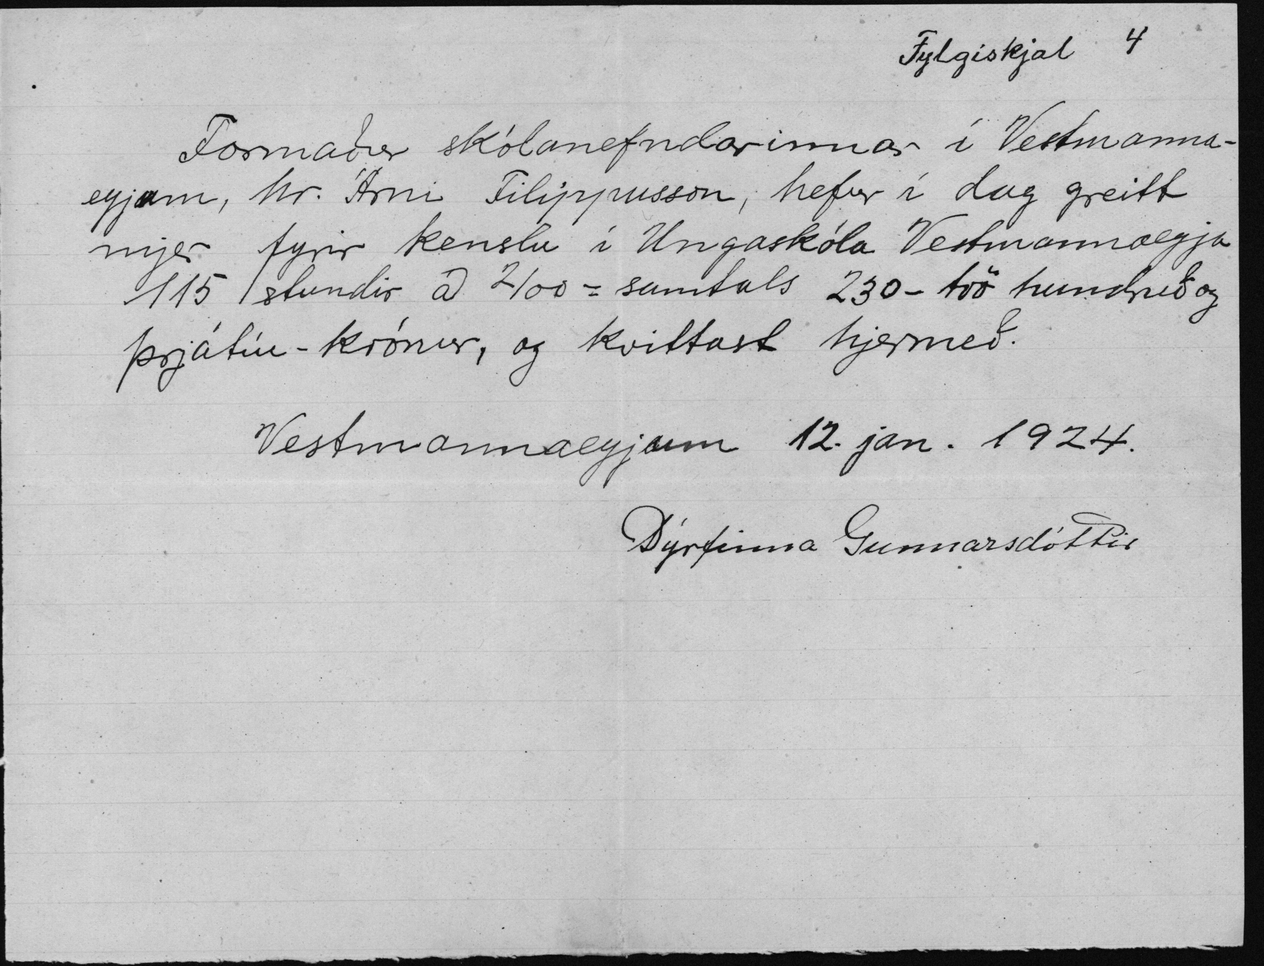 Fylgiskjal 4
Formaður skólanefndarinnar í Vestmanna-
eyjum, hr. Árni Filippusson, hefur í dag greitt
mjer fyrir kenslu í Ungaskóla Vestmannaeyja
115 stundir á 2/00 = samtals 230 - tvö hundruð og
þrjátíu - krónur, og kvittast hjermeð.
Vestmannaeyjum 12. jan. 1924.
Dýrfinna Gunnarsdóttir